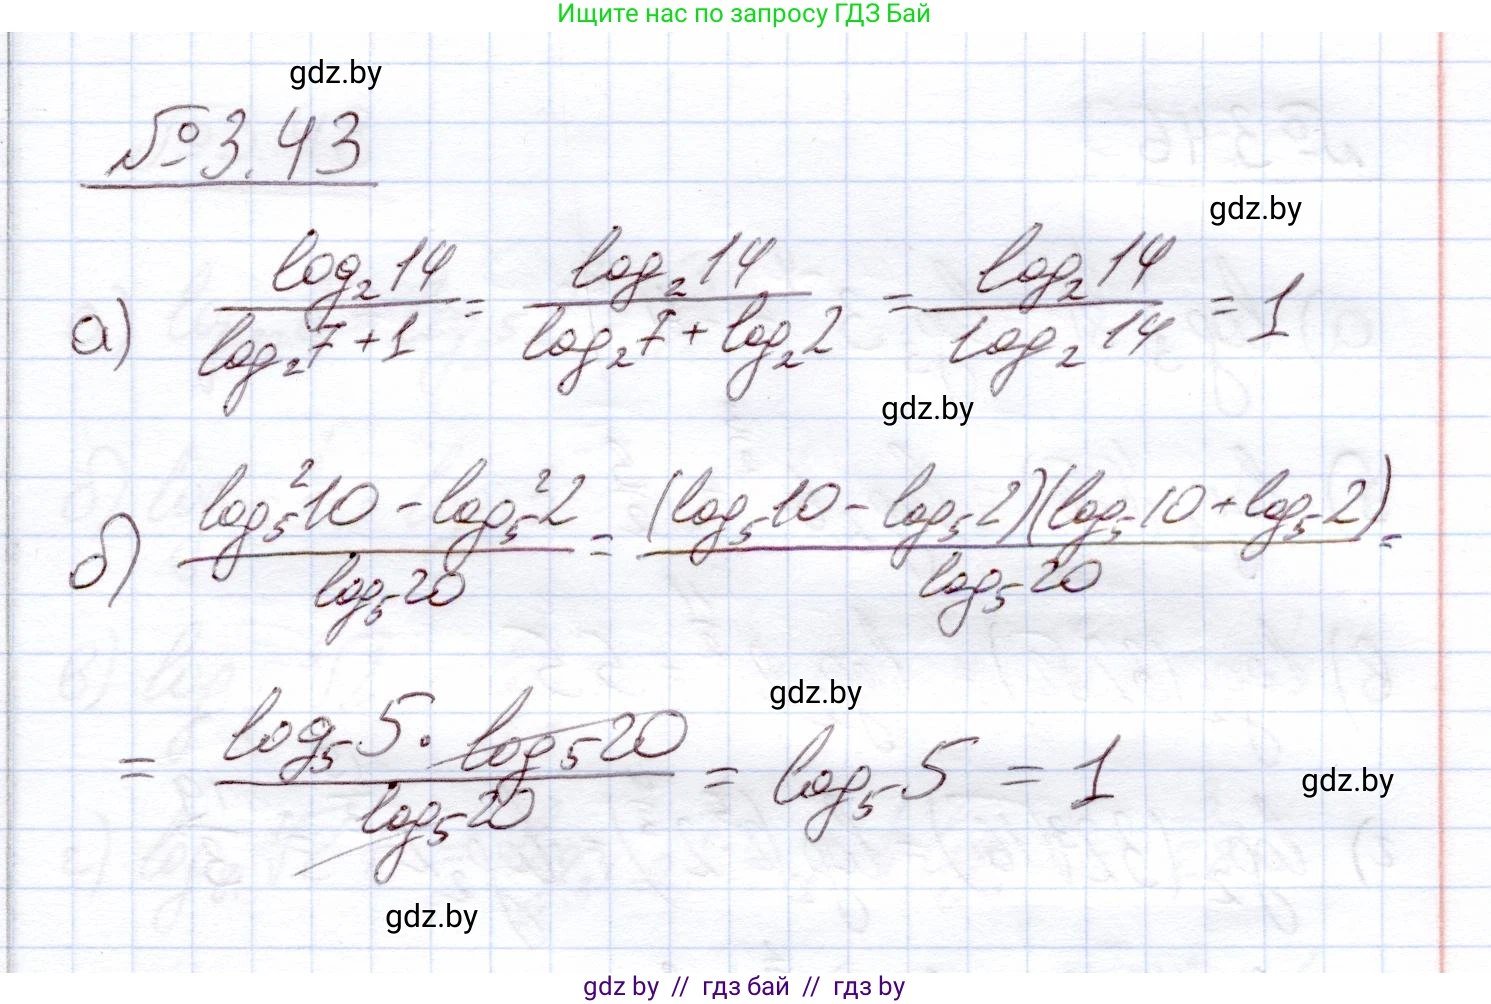 Ищите нас по запросу ГДЗ Бай
gdz.by
№ 3.43
gdz.by
а) log₂14 / (log₂7 + 1) = log₂14 / (log₂7 + log₂2) = log₂14 / log₂14 = 1
gdz.by
б) (log₅²10 - log₅²2) / log₅20 = (log₅10 - log₅2)(log₅10 + log₅2) / log₅20 =
gdz.by
= log₅5 · log₅20 / log₅20 = log₅5 = 1
gdz.by
gdz.by
gdz.by // гдз бай // гдз by